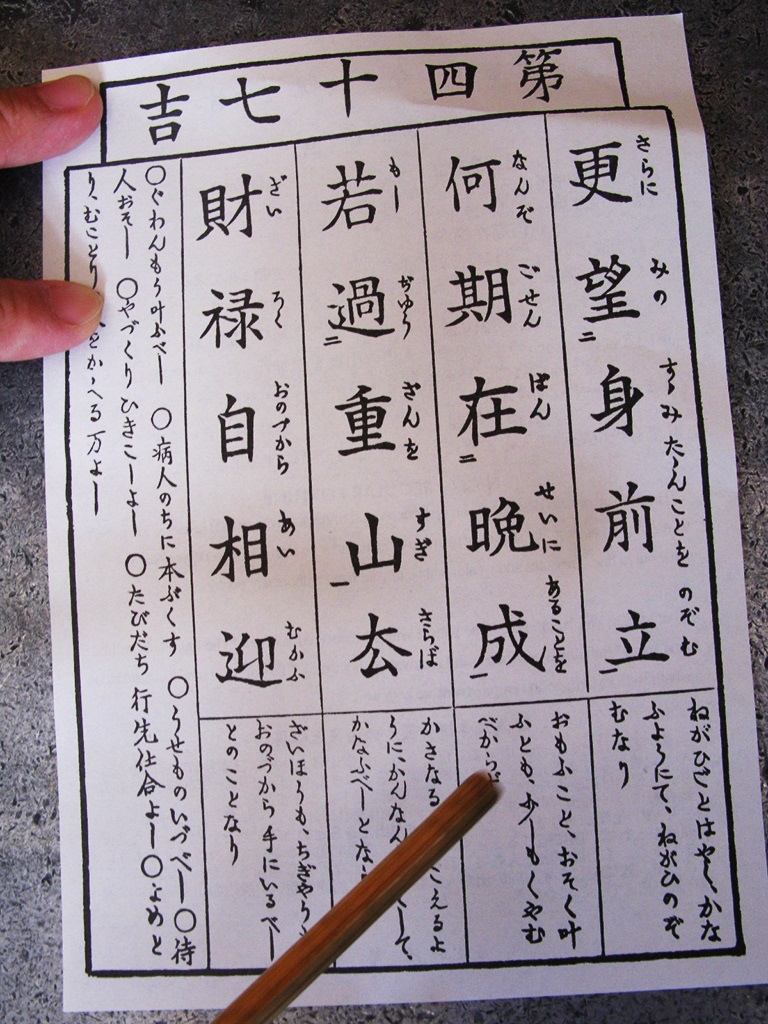 第四十七吉
更望二身前立一
さらに みの すゝみたゝんことを のぞむ
何期在二晩成一
なんぞ ごせん ばん せいに あることを
若過二重山一厺
もし ぢゆう ざんを すぎ さらば
財禄自相迎
ざい ろく おのづから あい むかふ
ねがひごとはやく、かな
ふようにて、ねがひのぞ
むなり
おもふこと、おそく叶
ふとも、少しもくやむ
べからず
かさなる こえるよ
うに、かんなん して、
かなふべしとな
ざいほうも、ちぎやう
おのづから手にいるべし
とのことなり
○ぐわんもう叶ふべし ○病人のちに本ぷくす ○うせものいづべし○待
人おそし ○やづくりひきこしよし ○たびだち行先仕合よし○よめと
り、むことり をかゝへる万よし